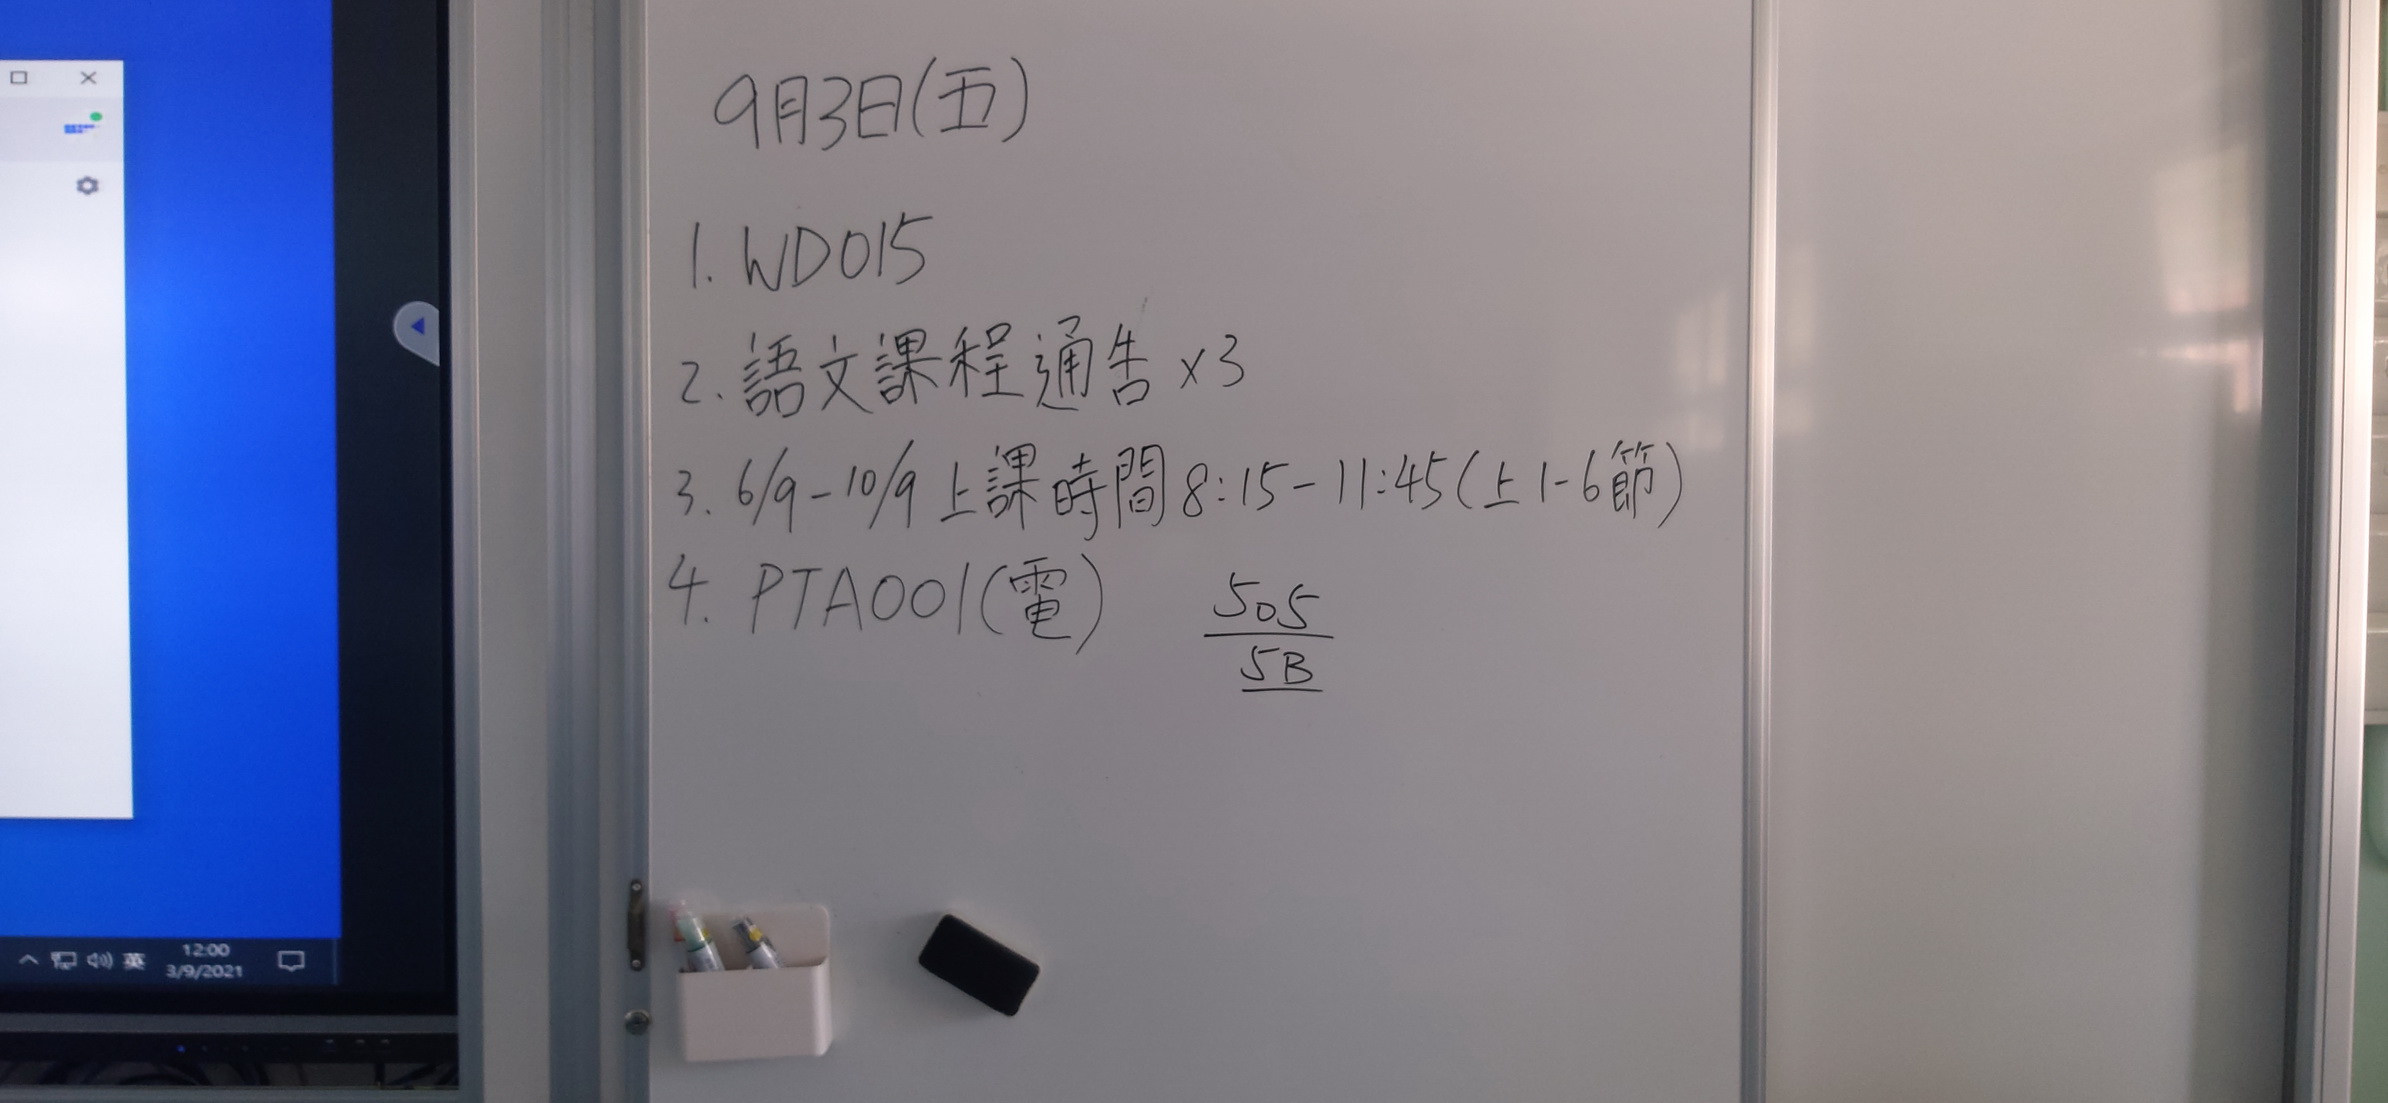 9月3日(五)
1. WD015
2. 語文課程通告 x3
3. 6/9-10/9上課時間8:15-11:45(上1-6節)
4. PTA001(電)
505
5B
英
12:00
3/9/2021